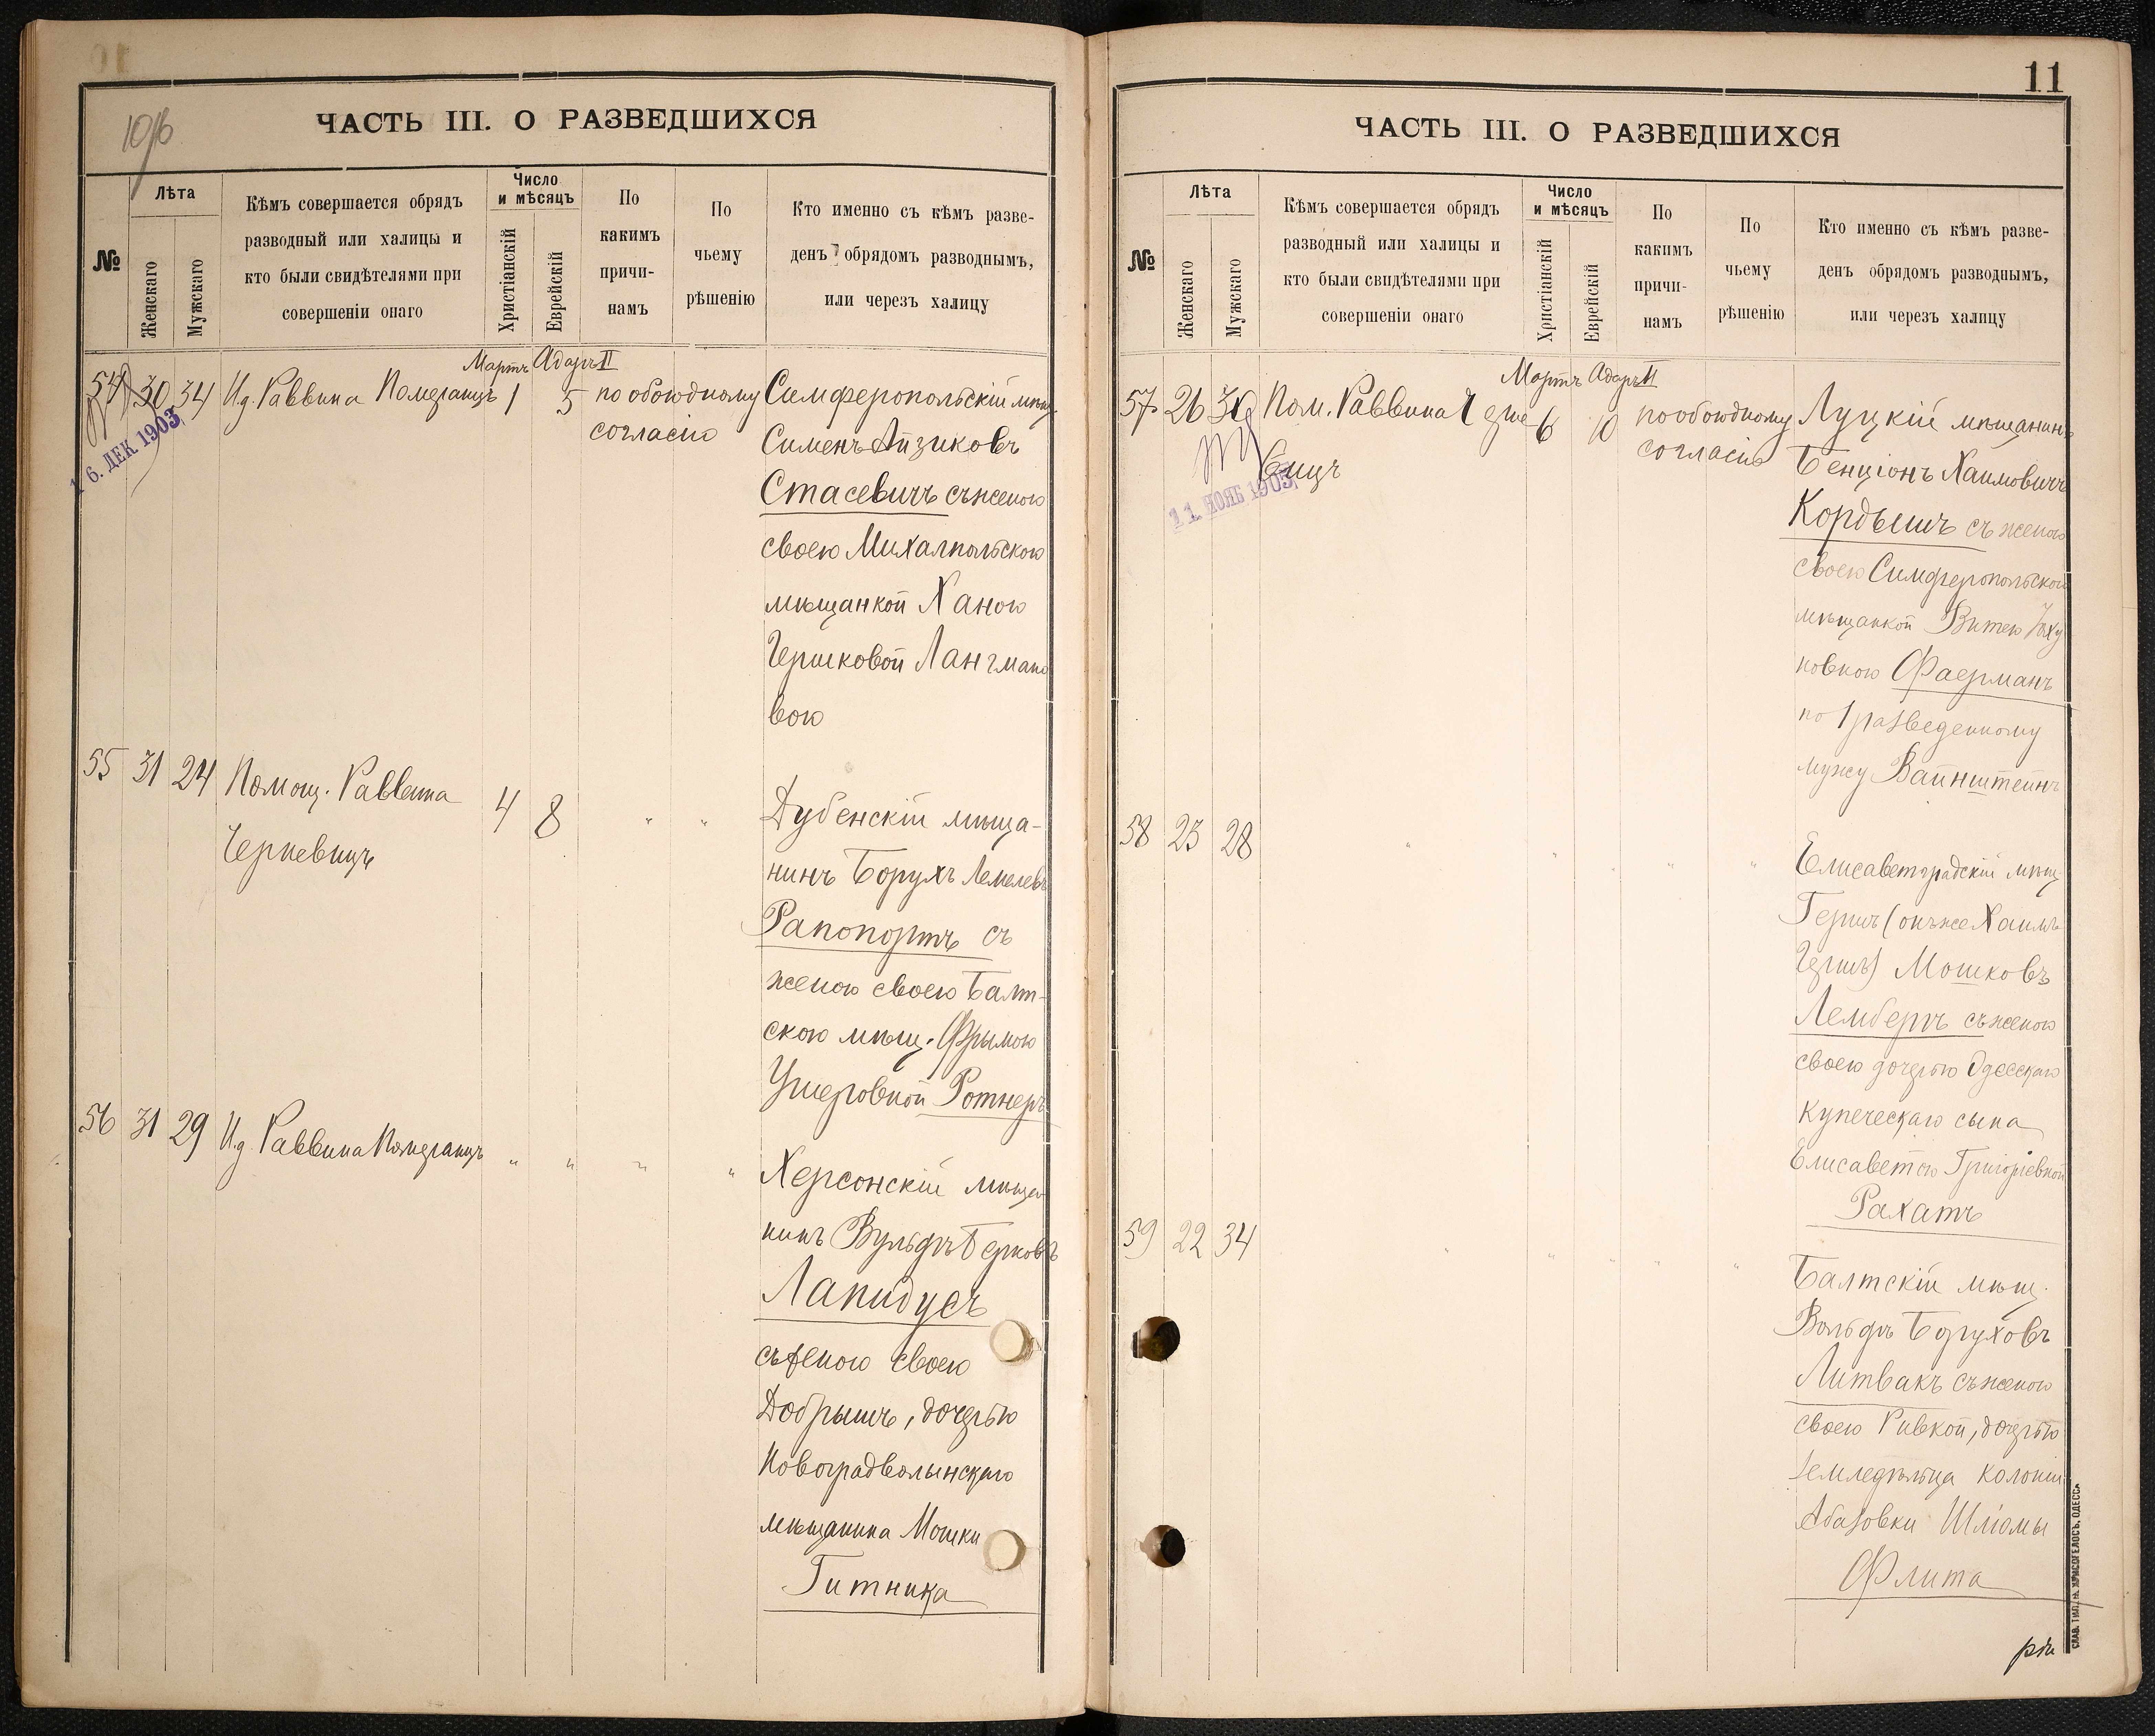 10/б
ЧАСТЬ III. О РАЗВЕДШИХСЯ
№
Лѣта
Женскаго
Мужскаго
Кѣмъ совершается обрядъ
разводный или халицы и
кто были свидѣтелями при
совершеніи онаго
Число
и мѣсяцъ
Христіанскій
Еврейскій
По
какимъ
причи-
намъ
По
чьему
рѣшенію
Кто именно съ кѣмъ разве-
денъ обрядомъ разводнымъ,
или черезъ халицу
Мартъ Адаръ II
54 30 34 И.д. Раввина Померанцъ 1 5 по обоюдному
согласію
16. ДЕК 1903
Симферопольскій мѣщ.
Сименъ Айзиковъ
Стасевичъ съ женою
своею Михалпольскою
мѣщанкой Ханою
Гершковой Лангмано
вою
55 31 24 Помощ. Раввина
Черкевицъ
4 8 " "
Дубенскій мѣща-
нинъ Борухъ Лемелевъ
Рапопортъ съ
женою своею Балт-
скою мѣщ. Фрымою
Ушеровной Ротнеръ
56 31 29 И.д. Раввина Померанцъ " " " "
Херсонскій мѣща
нинъ Вульфъ Берковъ
Лапидусъ
съ женою своею
Добрышъ, дочерью
Новоградволынскаго
мѣщанина Мошки
Гитника
11
ЧАСТЬ III. О РАЗВЕДШИХСЯ
№
Лѣта
Женскаго
Мужскаго
Кѣмъ совершается обрядъ
разводный или халицы и
кто были свидѣтелями при
совершеніи онаго
Число
и мѣсяцъ
Христіанскій
Еврейскій
По
какимъ
причи-
намъ
По
чьему
рѣшенію
Кто именно съ кѣмъ разве-
денъ обрядомъ разводнымъ,
или черезъ халицу
Мартъ Адаръ II
57 26 30 Пом. Раввина
вицъ
6 10 по обоюдному
согласію
11. НОЯБ 1903
Луцкій мѣщанинъ
Бенціонъ Хаимовичъ
Кордышъ съ женою
своею Симферопольскою
мѣщанкой Витею
новною Фаерманъ
по 1 разведенному
мужу Вайнштейнъ
58 23 28 " " " "
Елисаветградскій мѣщ.
Гершъ (онъ же Хаимъ
Гершъ) Мошковъ
Лембергъ съ женою
своею дочерью Одесскаго
купеческаго сына
Елисаветою Григорьевной
Рахатъ
59 22 34 " " " " "
Балтскій мѣщ.
Вольфъ Боруховъ
Литвакъ съ женою
своею Ривкой, дочерью
земледѣльца колоніи
Абазовки Шліомы
Флита
СЛАВ. ТИП. Н. ХРИСОГЕЛОСЪ, ОДЕССА